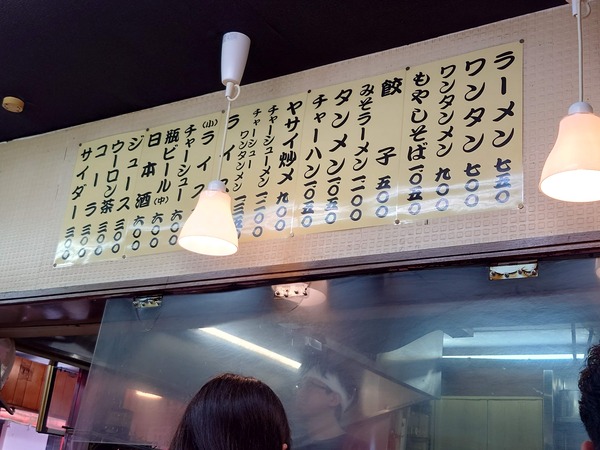 ラーメン 七五〇
ワンタン 七〇〇
ワンタンメン 九〇〇
もやしそば 一〇五〇
餃子 五〇〇
みそラーメン 一一〇〇
タンメン 一〇五〇
チャーハン 一〇五〇
ヤサイ炒メ 九〇〇
チャーシューメン 一二〇〇
チャーシューワンタンメン 一三五〇
ライ
(小)ライス
チャーシュー 六
瓶ビール(中) 六
日本酒 六〇〇
ジュース 三〇〇
ウーロン茶 三〇〇
コーラ 三〇〇
サイダー 三〇〇